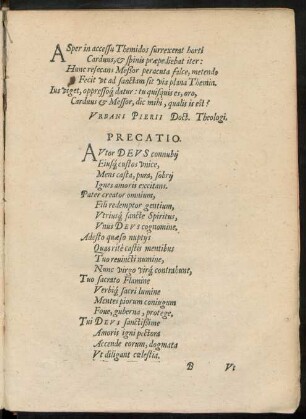 ASper in accessu Themidos surrexerat horti
Carduus, & spinis præpediebat iter:
Hunc resecans Messor peracuta falce, metendo
Fecit vt ad sanctam sit via plana Themin.
Ius viget, oppressoq́ datur: tu quisquis es, oro,
Carduus & Messor, dic mihi, qualis is est?
VRBANI PIERII Doct. Theologi.
PRECATIO.
AVtor DEVS connubij
Eiusq́ custos vnice,
Mens casta, pura, sobrij
Ignes amoris excitans.
Pater creator omnium,
Fili redemptor gentium,
Vtriusq́ sancte Spiritus,
Vnus DEVS cognomine,
Adesto quæso nuptijs
Quas ritè castis mentibus
Tuo reuincti numine,
Nunc virgo virq́ contrahunt,
Tuo sacrato Flamine
Verbiq́ sacri lumine
Mentes piorum coniugum
Foue, guberna, protege,
Tui DEVS sanctissime
Amoris igni pectora
Accende eorum, dogmata
Vt diligant cœlestia.
B Vt